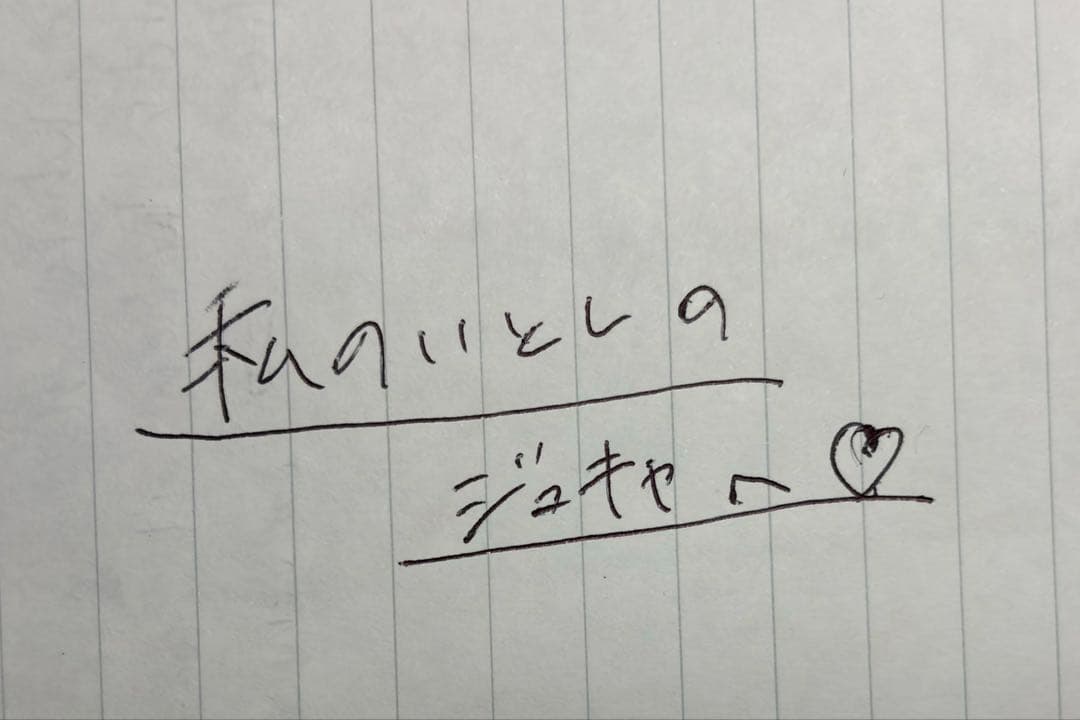 私のいとしの
ジュキャへ♡